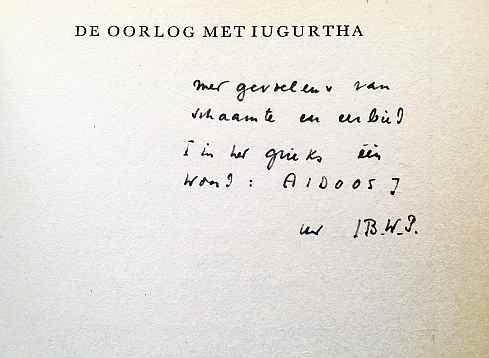 DE OORLOG MET IUGURTHA
met gevoelens van
schaamte en eerbied
[ in het grieks één
woord : AIDOOS ]
uw JBWP.